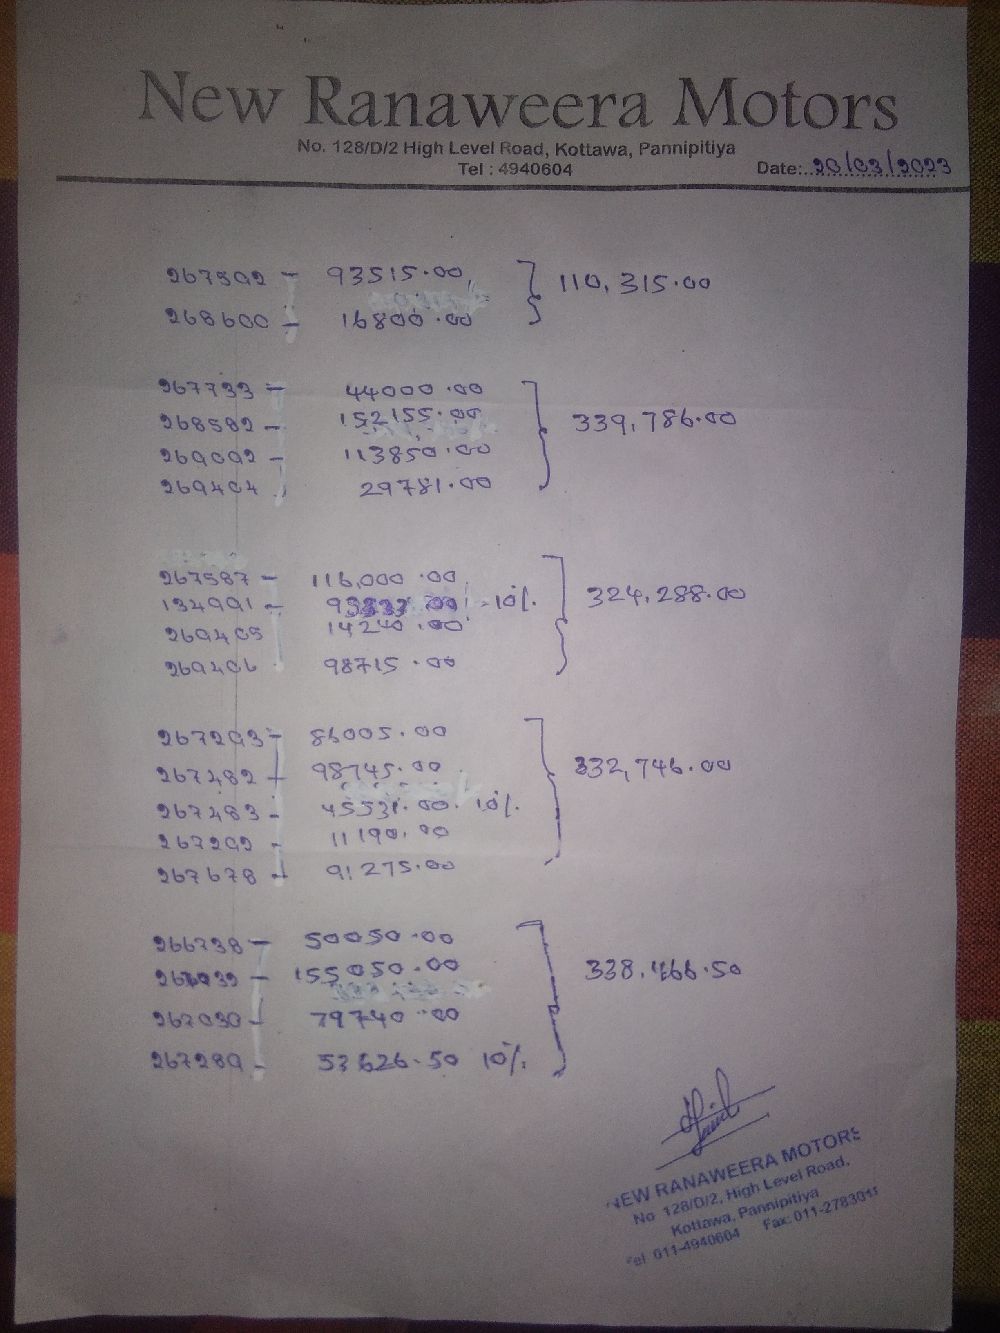 New Ranaweera Motors
No. 128/D/2 High Level Road, Kottawa, Pannipitiya
Tel : 4940604
Date:..20/03/2023
267592 - 93515.00
268600 - 16800.00
110,315.00
267733 - 44000.00
268582 - 152155.00
269092 - 113850.00
269404 29781.00
339,786.00
267587 - 116,000.00
134991 - 93333.00 -10%.
269405 14240.00
269406 98715.00
324,288.00
267293 - 86005.00
267482 - 98745.00
267483 - 45531.00. 10%.
267292 - 11190.00
267678 - 91275.00
332,746.00
266738 - 50050.00
267039 - 155050.00
267030 - 79740.00
267289 - 53626.50 10%.
338,466.50
NEW RANAWEERA MOTORS
No 128/D/2, High Level Road,
Kottawa, Pannipitiya
Tel 011-4940604 Fax: 011-2783011